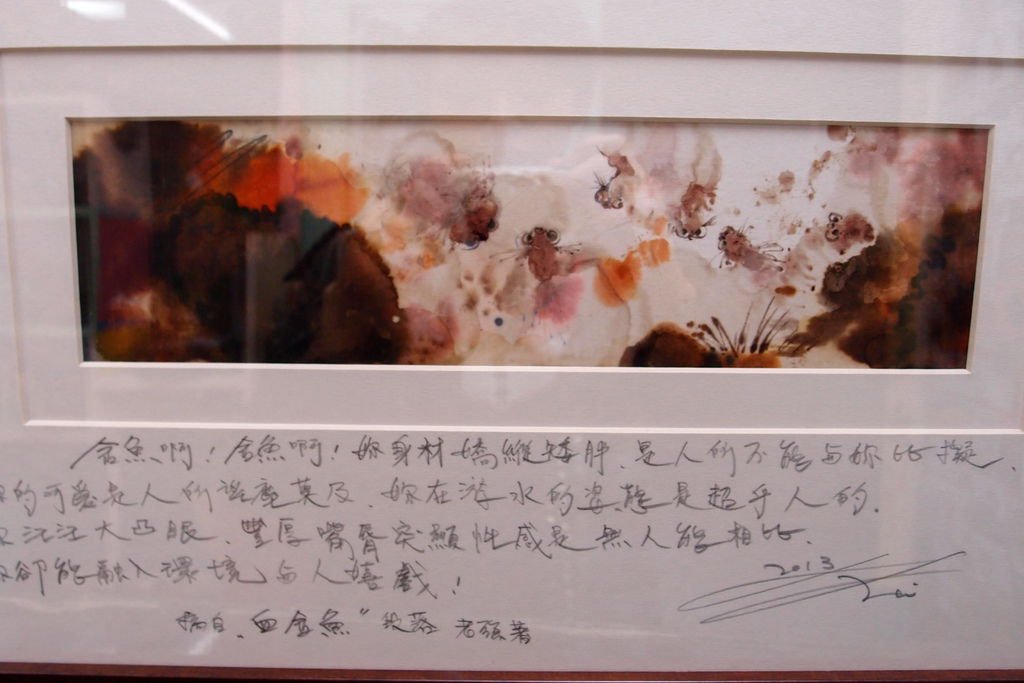 金魚啊！金魚啊！妳身材嬌縱矮胖、是人所不能与妳比擬、
的可愛是人所望塵莫及、妳在游水的姿態是超乎人的.
汪汪大凸眼、豐厚嘴唇突顯性感是無人能相比、
卻能融入環境、与人嬉戲！
2013
摘自、血金魚"段落 老強著